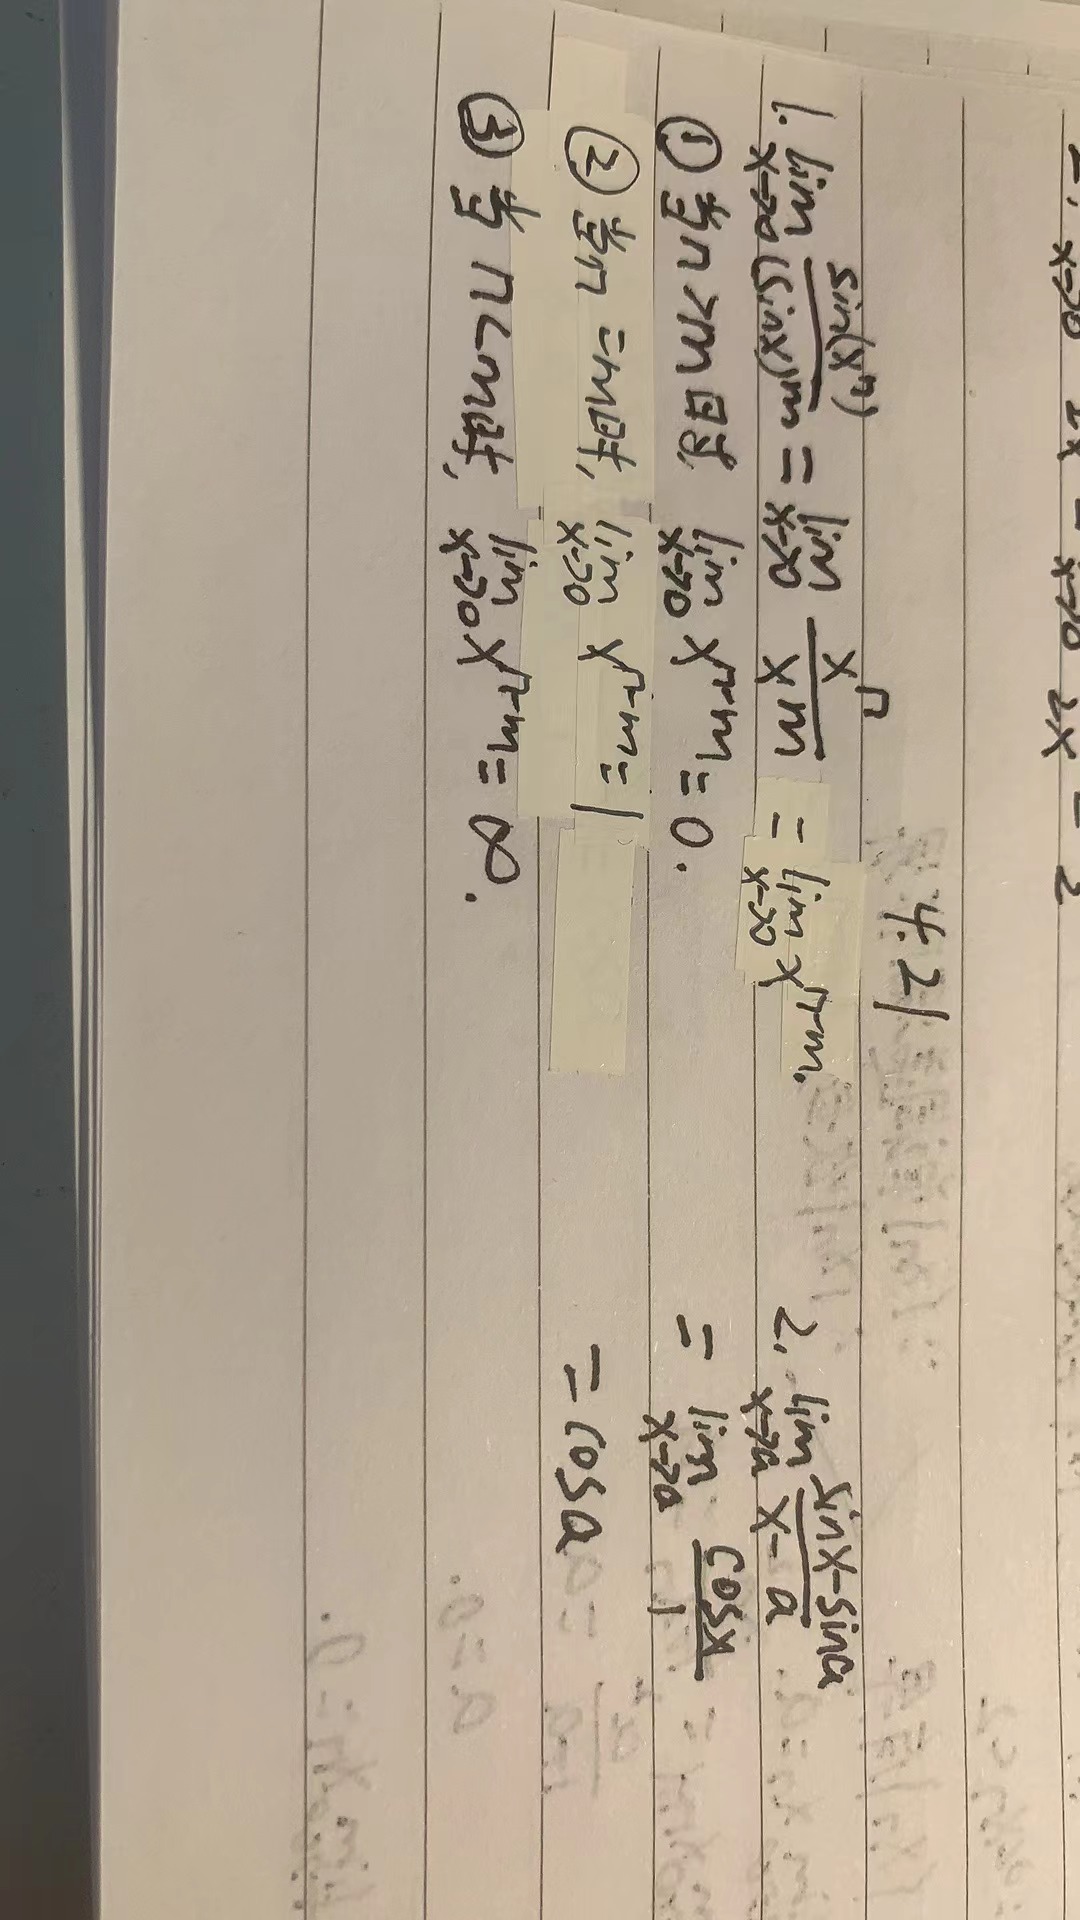 4.21
1. lim x→0 sin(xⁿ)/(sinx)ᵐ = lim x→0 xⁿ/xᵐ = lim x→0 xⁿ⁻ᵐ.
① 当n>m时, lim x→0 xⁿ⁻ᵐ = 0.
② 当n=m时, lim x→0 xⁿ⁻ᵐ = 1
③ 当n<m时, lim x→0 xⁿ⁻ᵐ = ∞.
2. lim x→a sinx-sina/x-a
= lim x→a cosx/1
= cosa